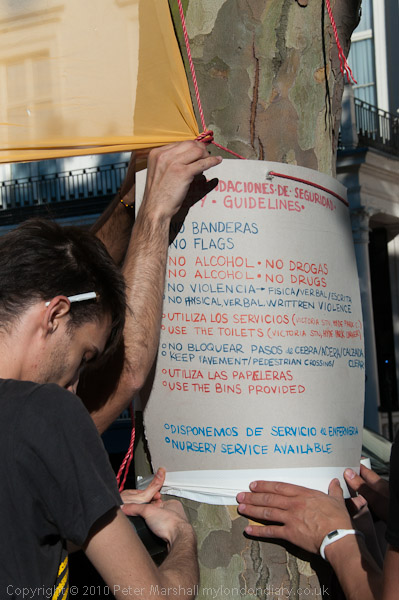 DACIONES DE SEGURIDAD
GUIDELINES
NO BANDERAS
NO FLAGS
NO ALCOHOL • NO DROGAS
NO ALCOHOL • NO DRUGS
NO VIOLENCIA → FISICA/VERBAL/ESCRITA
NO PHISICAL, VERBAL, WRITTREN VIOLENCE
UTILIZA LOS SERVICIOS (VICTORIA STN, HYDE PARK)
USE THE TOILETS (VICTORIA STN, HYDE PARK
NO BLOQUEAR PASOS de CEBRA/ACERA/CALZADA
KEEP PAVEMENT/PEDESTRIAN CROSSINGS/ CLEAR
UTILIZA LAS PAPELERAS
USE THE BINS PROVIDED
DISPONEMOS DE SERVICIO de ENFERMERIA
NURSERY SERVICE AVAILABLE
Copyright © 2010 Peter Marshall mylondondiary.co.uk